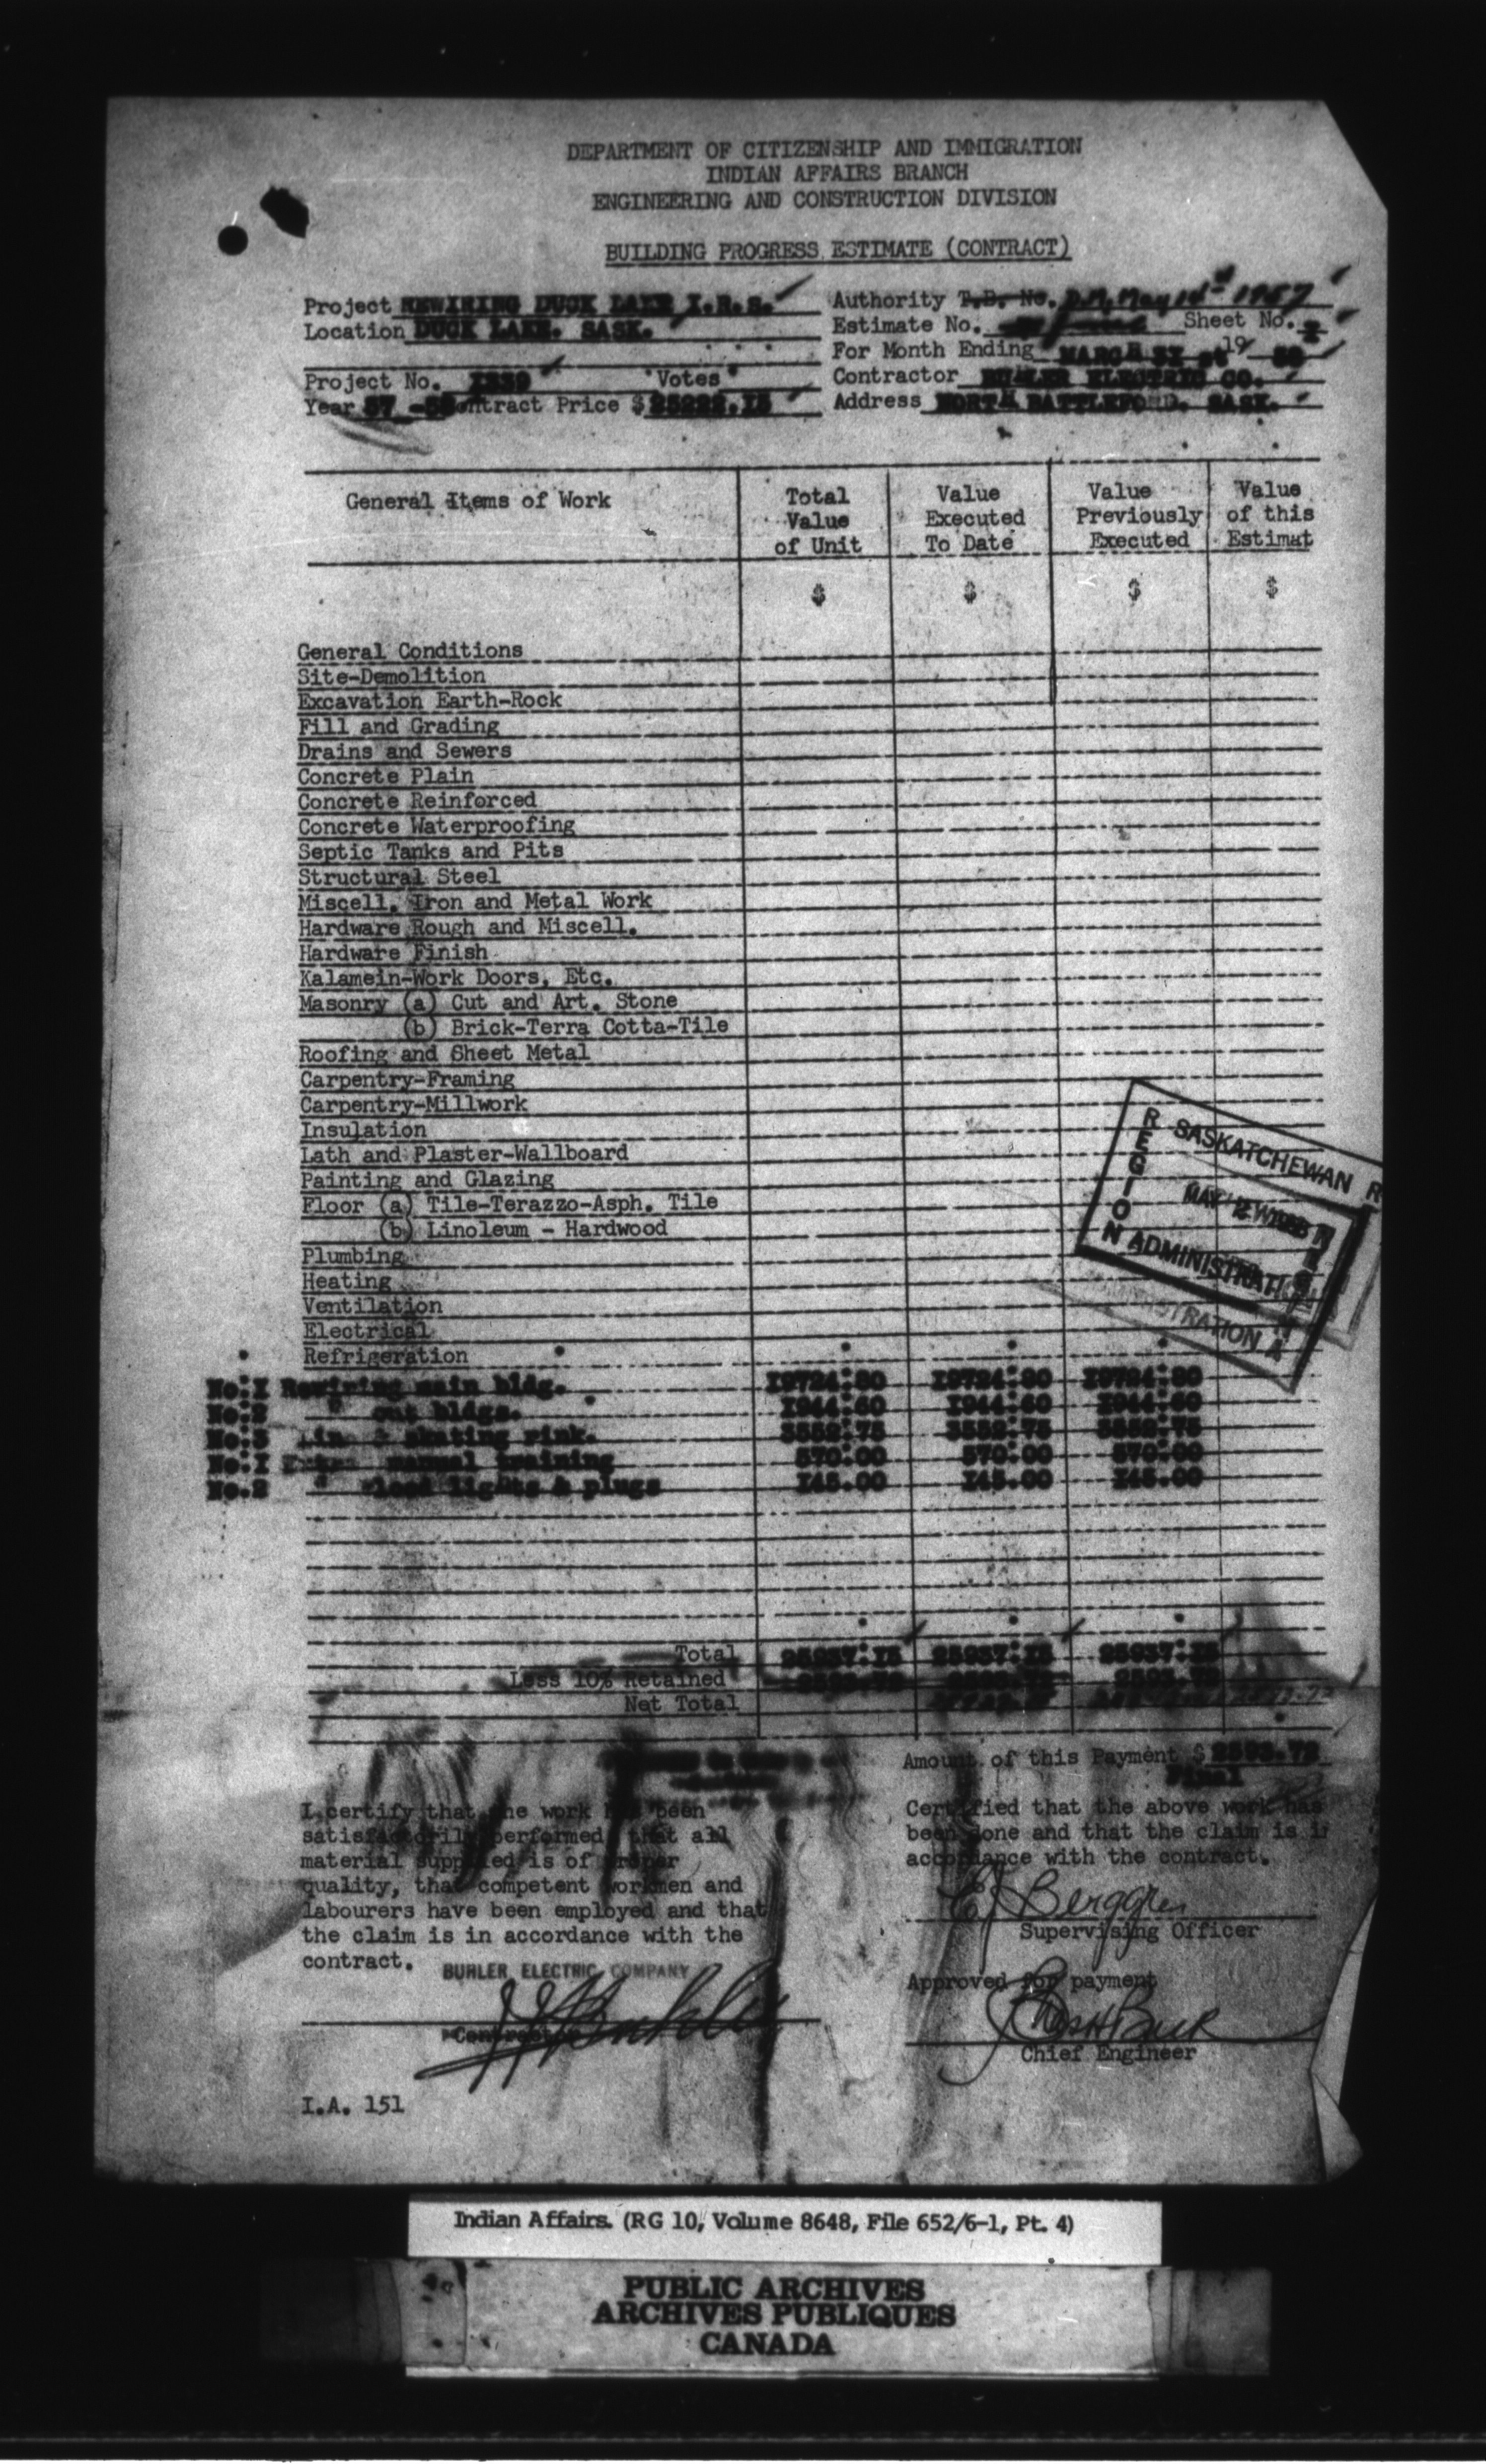 DEPARTMENT OF CITIZENSHIP AND IMMIGRATION
INDIAN AFFAIRS BRANCH
ENGINEERING AND CONSTRUCTION DIVISION
BUILDING PROGRESS ESTIMATE (CONTRACT)
Project REWIRING DUCK LAKE I.R.S. Authority T.B. No. D.M. May 14th 1957
Location DUCK LAKE. SASK. Estimate No. Sheet No.
For Month Ending MARCH 31 st 19 58
Project No. I339 Votes Contractor BUHLER ELECTRIC CO.
Year 57 -58 Contract Price $ 25222.I5 Address NORTH BATTLEFORD. SASK.
General Items of Work Total Value of Unit Value Executed To Date Value Previously Executed Value of this Estimat
$ $ $ $
General Conditions
Site-Demolition
Excavation Earth-Rock
Fill and Grading
Drains and Sewers
Concrete Plain
Concrete Reinforced
Concrete Waterproofing
Septic Tanks and Pits
Structural Steel
Miscell. Iron and Metal Work
Hardware Rough and Miscell.
Hardware Finish
Kalamein-Work Doors, Etc.
Masonry (a) Cut and Art. Stone
(b) Brick-Terra Cotta-Tile
Roofing and Sheet Metal
Carpentry-Framing
Carpentry-Millwork
Insulation
Lath and Plaster-Wallboard
Painting and Glazing
Floor (a) Tile-Terazzo-Asph. Tile
(b) Linoleum - Hardwood
Plumbing
Heating
Ventilation
Electrical
Refrigeration
REGION SASKATCHEWAN
MAY
ADMINISTRATION
No:I Rewiring main bldg. I9724:80 I9724:80 I9724:80
No:2 " out bldgs. I944:60 I944:60 I944:60
No:3 skating rink. 3552:75 3552:75 3552:75
No:I manual training 570:00 570:00 570:00
No.2 " flood lights & plugs I45.00 I45.00 I45.00
Total 25937:I5 25937:I5 25937:I5
Less 10% Retained 2593.72
Net Total
Amount of this Payment $ 2593.72
Final
I certify that the work has been
satisfactorily performed that all
material supplied is of proper
quality, that competent workmen and
labourers have been employed and that
the claim is in accordance with the
contract.
BUHLER ELECTRIC COMPANY
Contractor
Certified that the above work has
been done and that the claim is in
accordance with the contract.
Berggren
Supervising Officer
Approved for payment
Chief Engineer
I.A. 151
Indian Affairs. (RG 10, Volume 8648, File 652/6-1, Pt. 4)
PUBLIC ARCHIVES
ARCHIVES PUBLIQUES
CANADA